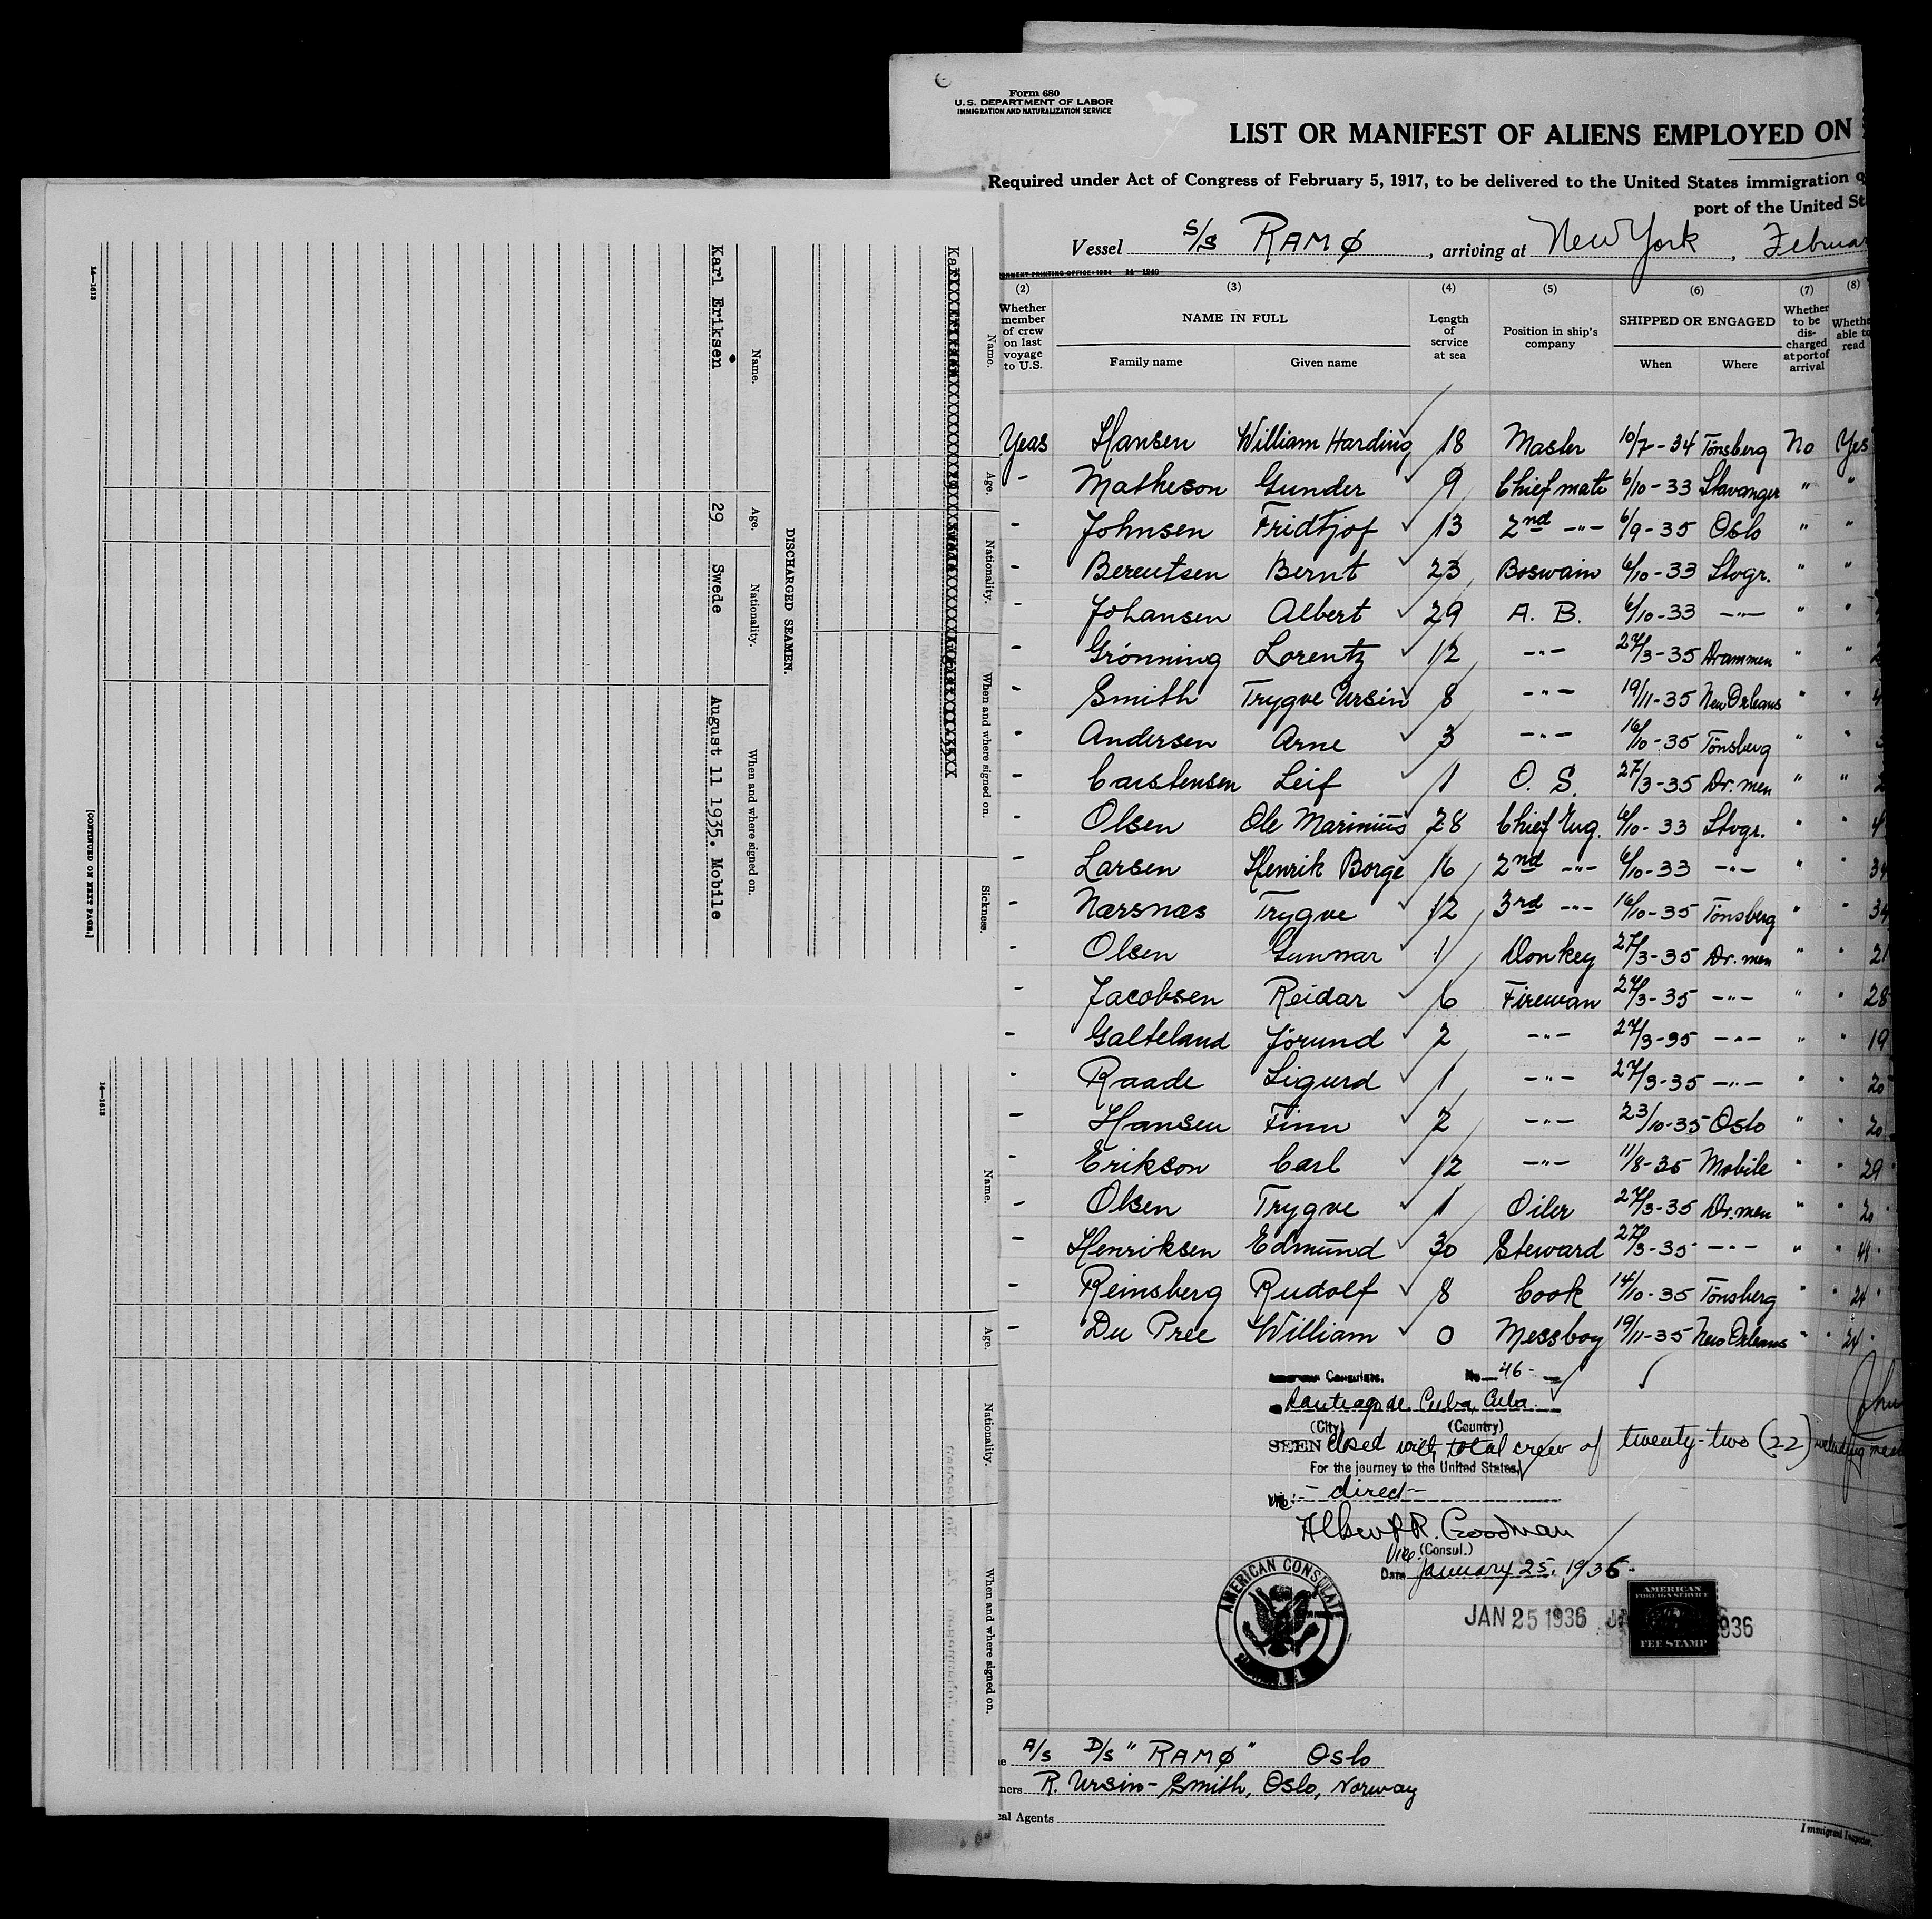 Form 680
U. S. DEPARTMENT OF LABOR
IMMIGRATION AND NATURALIZATION SERVICE
LIST OR MANIFEST OF ALIENS EMPLOYED ON
Required under Act of Congress of February 5, 1917, to be delivered to the United States immigration
port of the United St
Vessel S/S RAMØ, arriving at New York, Februar
(2) (3) (4) (5) (6) (7) (8)
Whether member of crew on last voyage to U.S. NAME IN FULL Length of service at sea Position in ship's company SHIPPED OR ENGAGED Whether to be discharged at port of arrival Whethe able to read
Family name Given name When Where
Yeas Hansen William Harding 18 Master 10/7-34 Tönsberg No Yes
- Matheson Gunder 9 Chief mate 6/10-33 Stavanger " "
- Johnsen Fridtjof 13 2nd -"- 6/9-35 Oslo " "
- Berentsen Bernt 23 Boswain 6/10-33 Stvgr. " "
- Johansen Albert 29 A. B. 6/10-33 -"- " "
- Grönning Lorentz 12 -"- 27/3-35 Drammen " "
- Smith Trygve Ursin 8 -"- 19/11-35 New Orleans " "
- Andersen Arne 3 -"- 16/10-35 Tönsberg " "
- Carstensen Leif 1 O. S. 27/3-35 Dr.men " "
- Olsen Ole Marinius 28 Chief Eng. 6/10-33 Stvgr. " "
- Larsen Henrik Borge 16 2nd -"- 6/10-33 -"- " " 34
- Nærsnæs Trygve 12 3rd -"- 16/10-35 Tönsberg " " 34
- Olsen Gunnar 1 Donkey 27/3-35 Dr.men " " 21
- Jacobsen Reidar 6 Fireman 27/3-35 -"- " " 28
- Galteland Jörund 2 -"- 27/3-35 -"- " " 19
- Raade Sigurd 1 -"- 27/3-35 -"- " " 20
- Hansen Finn 2 -"- 23/10-35 Oslo " " 20
- Erikson Carl 12 -"- 11/8-35 Mobile " " 29
- Olsen Trygve 1 Oiler 27/3-35 Dr.men " " 20
- Henriksen Edmund 30 Steward 27/3-35 -"- " "
- Reinsberg Rudolf 8 Cook 14/10-35 Tönsberg " " 24
- Du Pree William 0 Messboy 19/11-35 New Orleans " " 24
American Consulate. No. 46-
Santiago de Cuba, Cuba
(City) (Country)
SEEN closed with total crew of twenty-two (22) including
For the journey to the United States
Via:- direct-
Albert R. Goodman
Vice (Consul.)
Date January 25, 1936.
AMERICAN CONSULATE
JAN 25 1936
936
AMERICAN
FOREIGN SERVICE
FEE STAMP
A/S D/S "RAMØ" Oslo
ners R. Ursin-Smith, Oslo, Norway
cal Agents
Immigrant Inspector.
Name. Age. Nationality. When and where signed on. Sickness.
DISCHARGED SEAMEN.
Name. Age. Nationality. When and where signed on.
Karl Eriksen 29 Swede August 11 1935. Mobile
14—1618
[CONTINUED ON NEXT PAGE.]
Name. Age. Nationality. When and where signed on.
14—1618